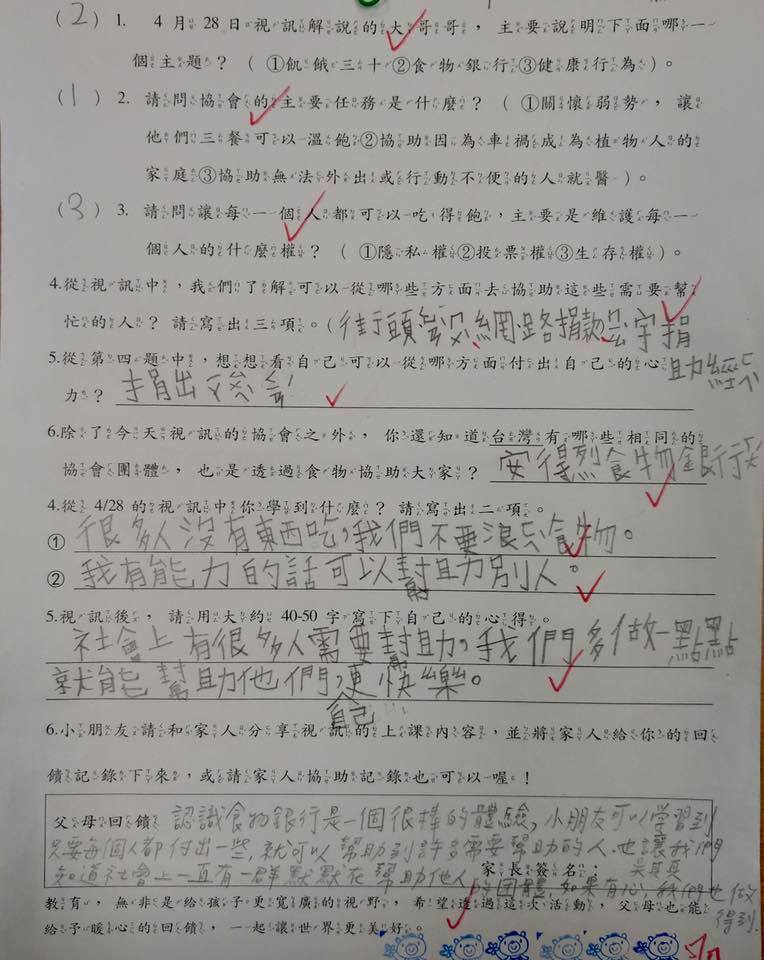 (2) 1. 4月28日視訊解說的大哥哥，主要說明下面哪一
個主題？（①飢餓三十②食物銀行③健康行為）。
(1) 2. 請問協會的主要任務是什麼？（①關懷弱勢，讓
他們三餐可以溫飽②協助因為車禍成為植物人的
家庭③協助無法外出或行動不便的人就醫）。
(3) 3. 請問讓每一個人都可以吃得飽，主要是維護每一
個人的什麼權？（①隱私權②投票權③生存權）。
4.從視訊中，我們了解可以從哪些方面去協助這些需要幫
忙的人？請寫出三項。(街頭 網路捐款 字捐
5.從第四題中，想想看自己可以從哪方面付出自己的心 助
力？捐出
6.除了今天視訊的協會之外，你還知道台灣有哪些相同的
協會團體，也是透過食物協助大家？安得烈食物銀行
4.從 4/28 的視訊中你學到什麼？請寫出二項。
① 很多人沒有東西吃，我們不要浪 食物。
② 我有能力的話可以幫助別人。
5.視訊後，請用大約 40-50 字寫下自己的心得。
社會上有很多人需要幫助，我們多做一點點
就能幫助他們，自己更快樂。
6.小朋友請和家人分享視訊的上課內容，並將家人給你的回
饋記錄下來，或請家人協助記錄也可以喔！
父母回饋 認識食物銀行是一個很棒的體驗，小朋友可以學習到
只要每個人都付出一些，就可以幫助到許多需要幫助的人.也讓我們
知道社會上一直有一群默默在幫助他人的團體，如果有心，我們也做
得到.
家長簽名：
教育，無非是給孩子更寬廣的視野，希望透過這次活動，父母也能
給予暖心的回饋，一起讓世界更美好。